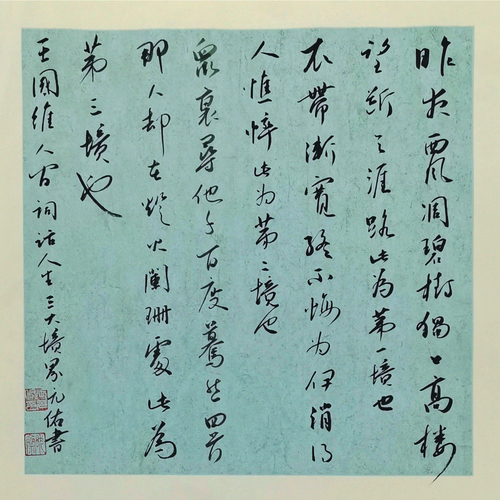 昨夜西風凋碧樹獨上高樓
望斷天涯路此為第一境也
衣帶漸寬終不悔為伊消得
人憔悴此為第二境也
眾裏尋他千百度驀然回首
那人却在燈火闌珊處此為
第三境也
王國維人間詞話人生三大境界九佑書